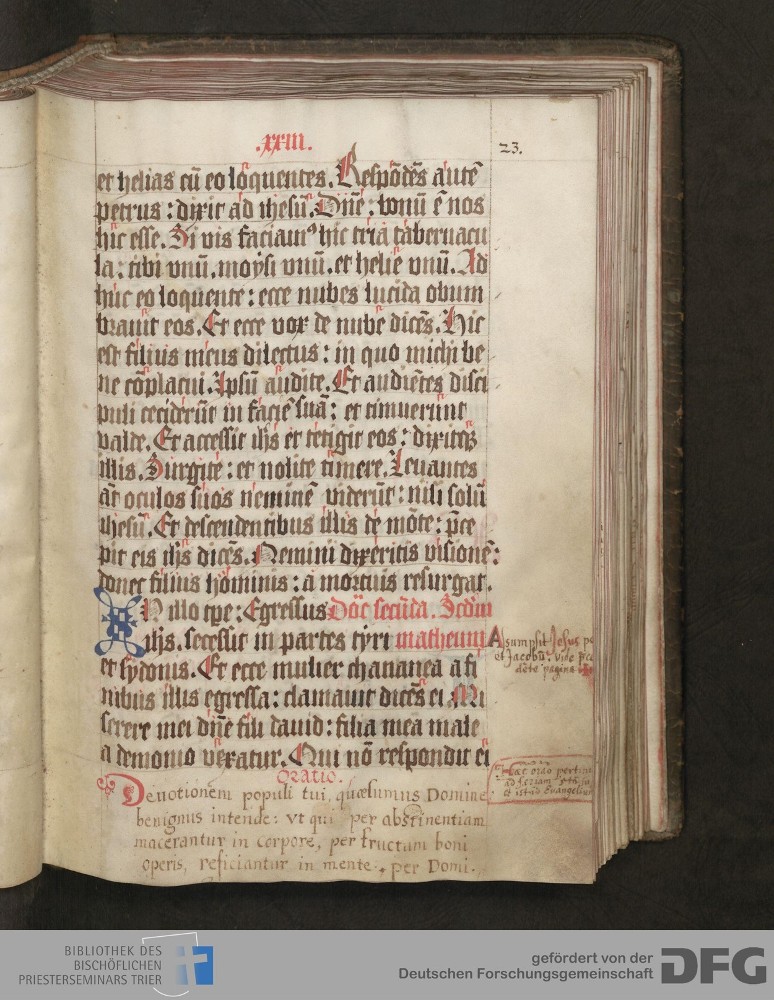 .xxiii.
23.
et helias cū eo loquentes. Respōdēs autē
petrus : dixit ad ihesū. Dñe : bonū ē nos
hic esse. Si vis faciamꝰ hic tria tabernacu
la : tibi vnū. moysi vnū. et helie vnū. Ad
huc eo loquente : ecce nubes lucida obum
brauit eos. Et ecce vox de nube dicēs. Hic
est filius meus dilectus : in quo michi be
ne cōplacui. Ipsū audite. Et audiētes disci
puli ceciderūt in faciē suā : et timuerunt
valde. Et accessit ihs et tetigit eos : dixitqꝫ
illis. Surgite : et nolite timere. Leuantes
āt oculos suos neminē viderūt : nisi solū
ihesū. Et descendentibus illis de mōte : p̄ce
pit eis ihs dicēs. Nemini dixeritis visionē :
donec filius hominis : a mortuis resurgat.
IN illo tp̄e : Egressus Dōc secūda. Scdm
ihs. secessit in partes tyri matheum
et sydonis. Et ecce mulier chananea a fi
nibus illis egressa : clamauit dicēs ei Mi
serere mei dñe fili dauid : filia mea male
a demonio vexatur. Qui nō respondit ei
Asumpsit Jesus
et Jacobū: vide
pagina
Oratio.
Deuotionem populi tui, quæsumus Domine
benignus intende: vt qui per abstinentiam
macerantur in corpore, per fructum boni
operis, reficiantur in mente. per Domi.
Hæc oro
ad feriam
et istud Euangeliū
BIBLIOTHEK DES
BISCHÖFLICHEN
PRIESTERSEMINARS TRIER
gefördert von der
Deutschen Forschungsgemeinschaft
DFG